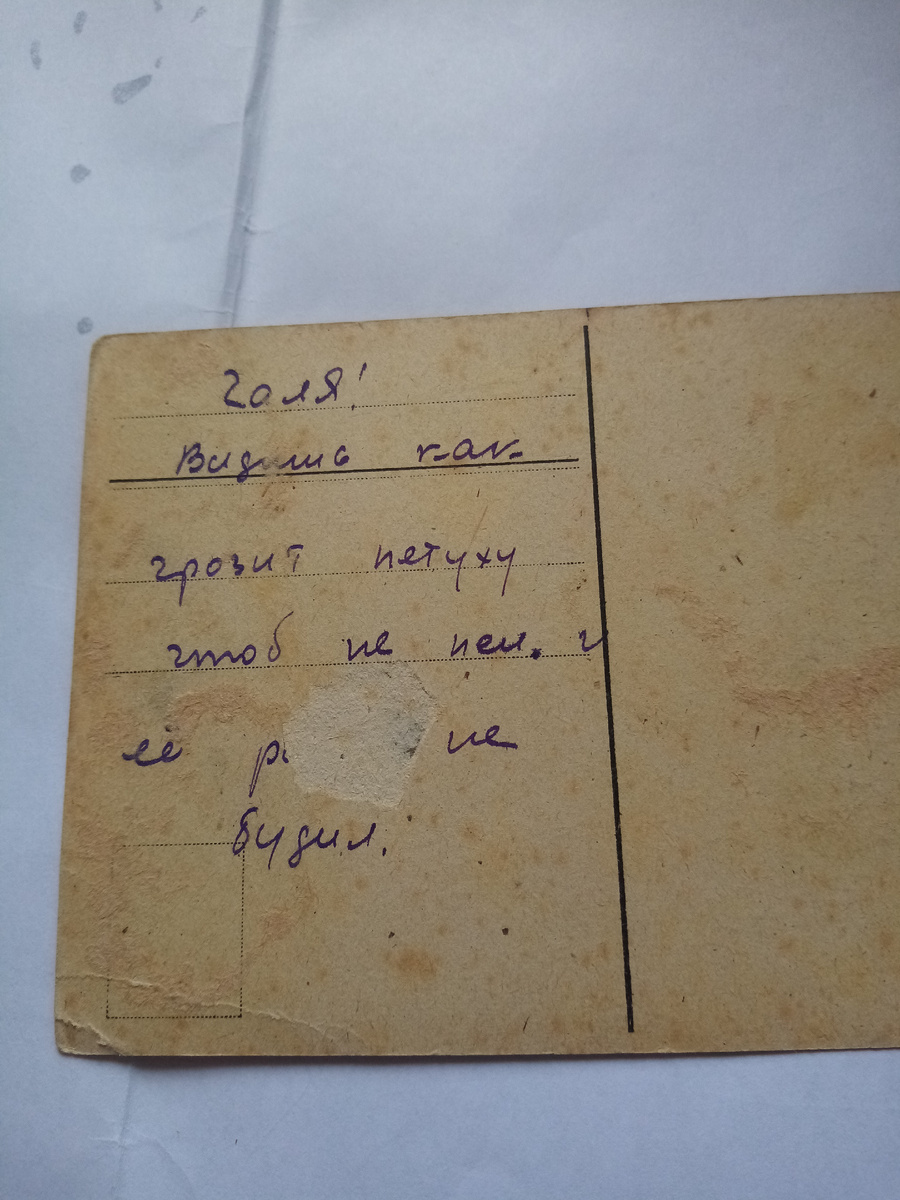 Галя!
Видишь как
грозит петуху
чтоб не пел. и
её не
будил.